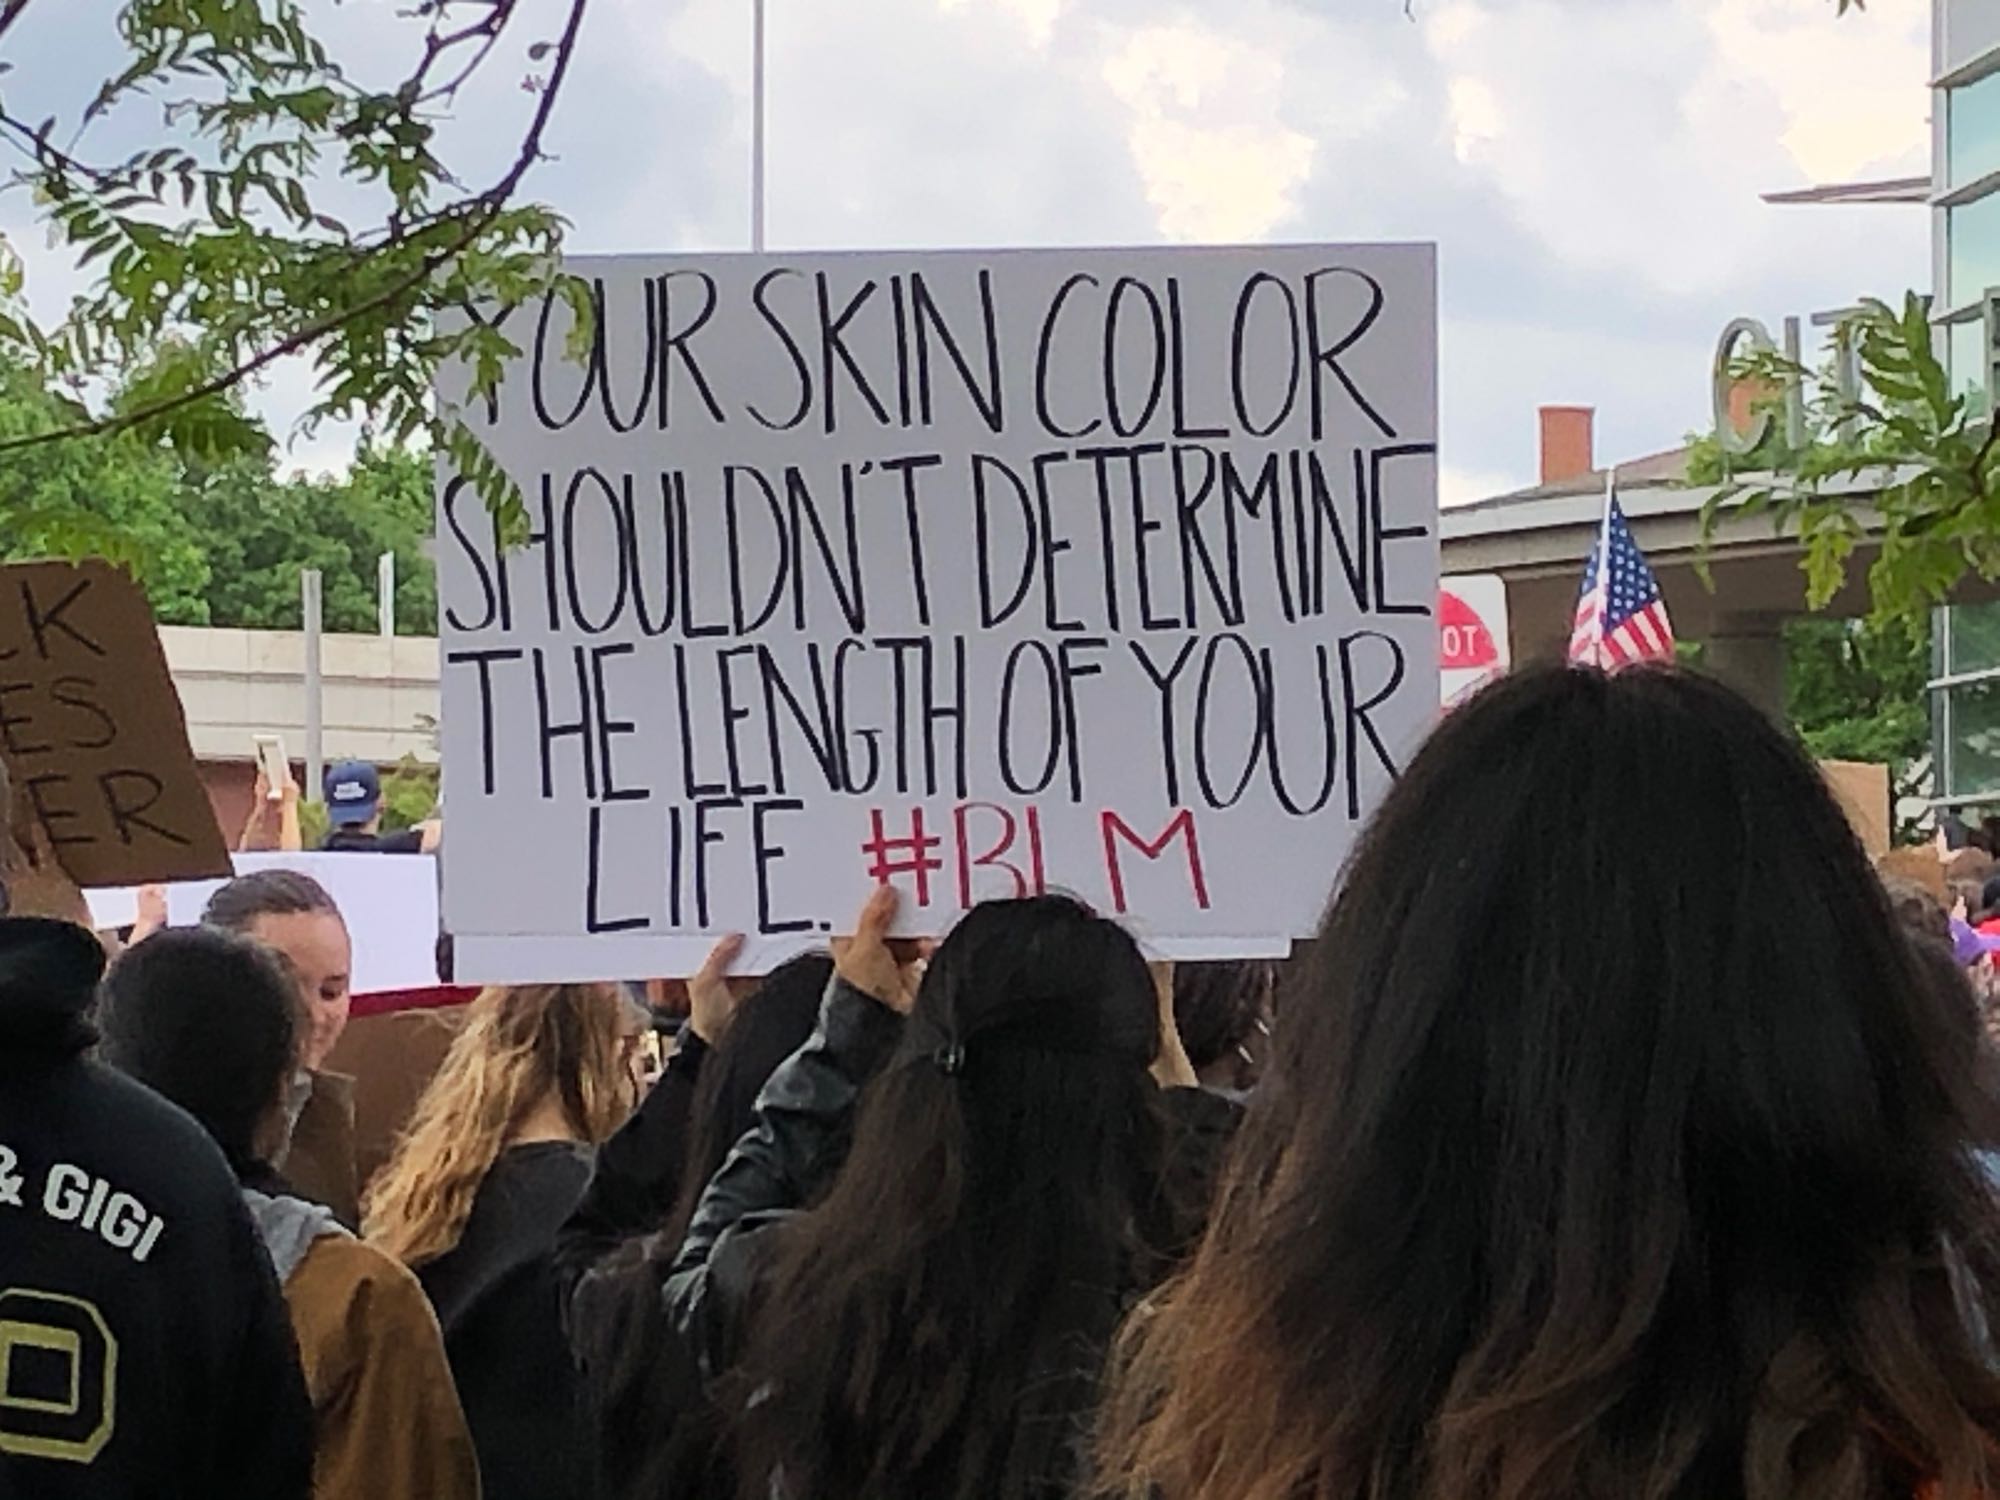 YOUR SKIN COLOR
SHOULDN'T DETERMINE
THE LENGTH OF YOUR
LIFE. #BLM
CK
ES
ER
& GIGI
CIT
OT